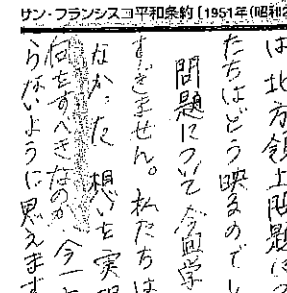 サン・フランシスコ平和条約〔1951年(昭和2
は北方領土問題につ
たちはどう映るのでし
問題について今回学
すぎません。私たちは
なかった想いを実現
何をすべきなのか、今一
らないように思えます